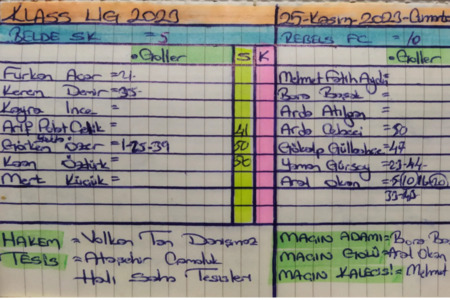 KLASS LİG 2023
25-Kasım-2023-Cumartes
BELDE SK = 5
REBELS FC = 10
•Goller
S K
•Goller
Furkan Acar =21-
Mehmet Fatih Aydı =
Kerem Demir =35-
Bora Başak =
Kayra İnce =
Arda Atılgan =
Arif Polat Çelik = 41
Arda =50
Gürkan Özer =1-25-39 50
Gökalp Güllübahçe=47
Kaan Öztürk = 50
Yaman Gürsoy =23-44-
Mert Küçük =
Aral Okan =5
HAKEM = Volkan Tan Danışmaz
TESİS = Ataşehir Çamoluk
Halı Saha Tesisleri
MAÇIN ADAMI= Bora Ba
MAÇIN GOLÜ=Aral Okan
MAÇIN KALECİSİ= Mehmet